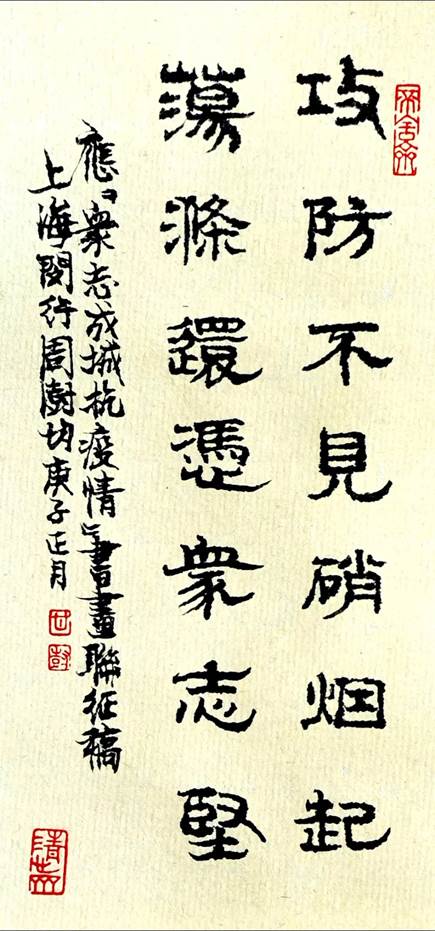 攻防不見硝烟起
蕩滌還憑衆志堅
應「衆志成城抗疫情」書畫聯征稿
上海閔行周澍庚子正月